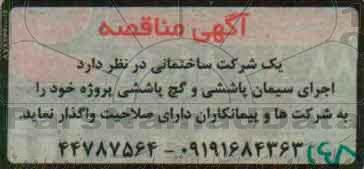 آگهی مناقصه
یک شرکت ساختمانی در نظر دارد
اجرای سیمان پاششی و گچ پاششی پروژه خود را
به شرکت ها و پیمانکاران دارای صلاحیت واگذار نماید.
۴۴۷۸۷۵۶۴ - ۰۹۱۹۱۶۸۴۳۶۳
ParsNamadData